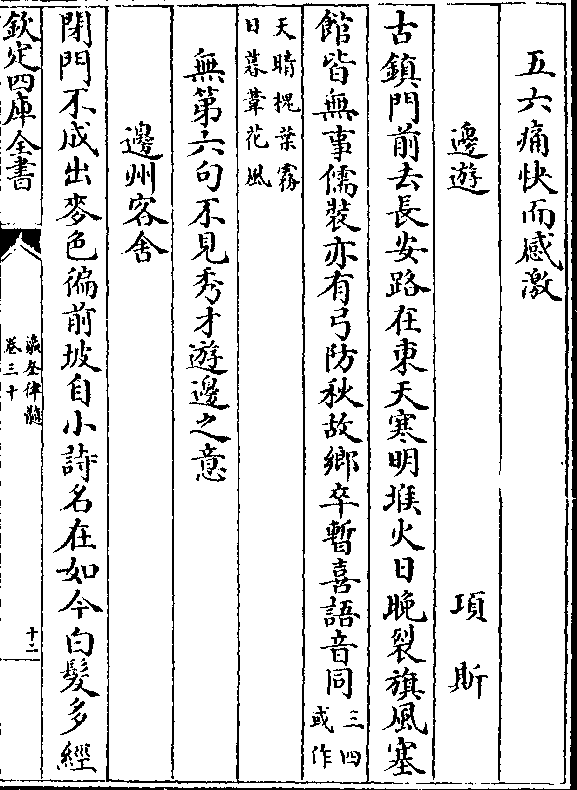 五六痛快而感激
邊遊　項斯
古鎮門前去長安路在東天寒明堠火日晚裂旗風塞
館皆無事儒裝亦有弓防秋故鄉卒暫喜語音同三四
或作
天晴槐葉霧
日暮葦花風
無第六句不見秀才遊邊之意
邊州客舍
閉門不成出麥色徧前坡自小詩名在如今白髮多經
欽定四庫全書
瀛奎律髓
卷三十
十二